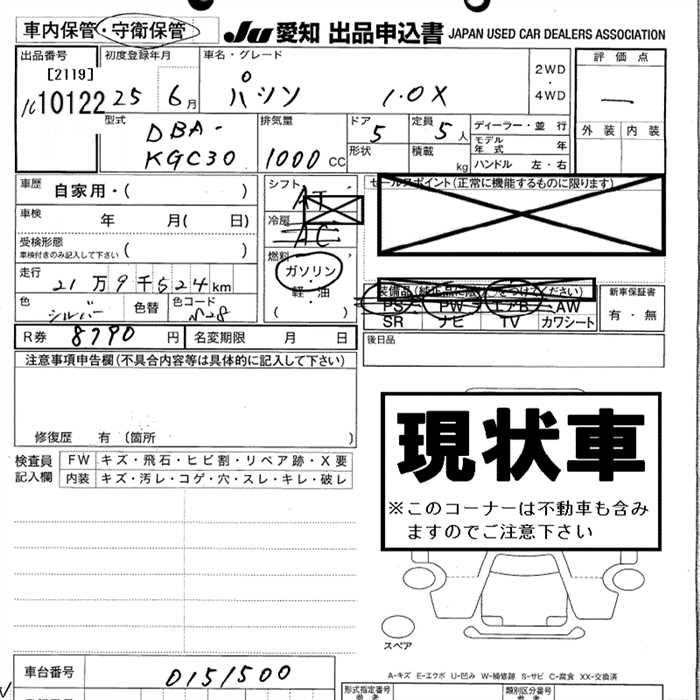 車内保管・守衛保管
JU 愛知 出品申込書 JAPAN USED CAR DEALERS ASSOCIATION
出品番号
[2119]
10122
初度登録年月
25 6月
車名・グレード
パッソ 1.0X
2WD
・
4WD
評価点
―
外装 内装
型式
DBA-
KGC30
排気量
1000 CC
ドア
5
形状
定員
5人
積載
kg
ディーラー・並行
モデル年式 年
ハンドル 左・右
車歴
自家用・( )
車検
年 月( 日)
受検形態
車検付きのみ記入して下さい
( )
走行
21万9千524km
色
シルバー
色替
色コード
シフト
AT
冷房
AC
燃料
ガソリン
軽・油
( )
セールスポイント(正常に機能するものに限ります)
PS PW エアB AW
SR ナビ TV カワシート
新車保証書
有・無
R券 8790円
名変期限 月 日
後日品
注意事項申告欄(不具合内容等は具体的に記入して下さい)
修復歴 有 (箇所 )
検査員
記入欄
FW キズ・飛石・ヒビ割・リペア跡・X要
内装 キズ・汚レ・コゲ・穴・スレ・キレ・破レ
現状車
※このコーナーは不動車も含み
ますのでご注意下さい
スペア
A-キズ E-エクボ U-凹ミ W-補修跡 S-サビ C-腐食 XX-交換済
車台番号
0151500
形式指定番号
参考
類別区分番号
参考